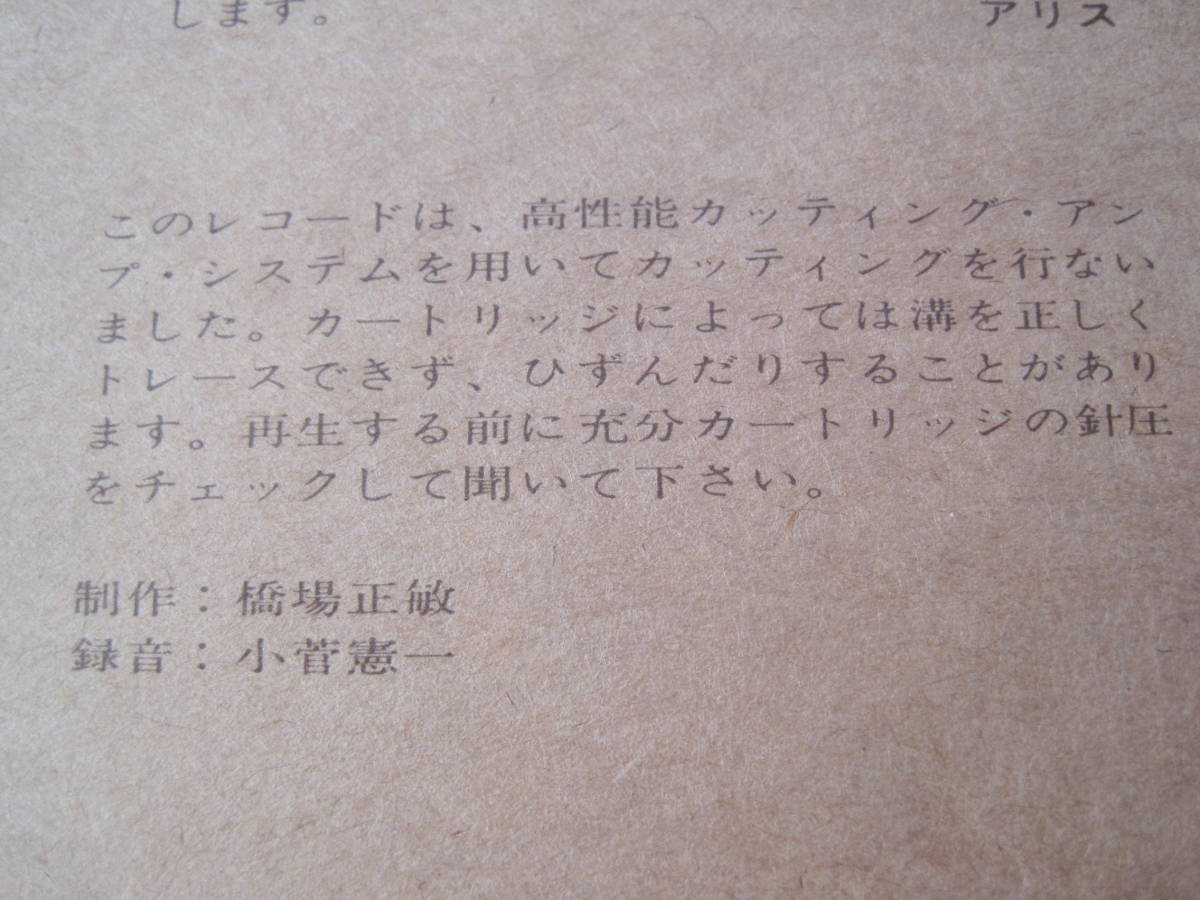 します。 アリス
このレコードは、高性能カッティング・アン
プ・システムを用いてカッティングを行ない
ました。カートリッジによっては溝を正しく
トレースできず、ひずんだりすることがあり
ます。再生する前に充分カートリッジの針圧
をチェックして聞いて下さい。
制作：橋場正敏
録音：小菅憲一